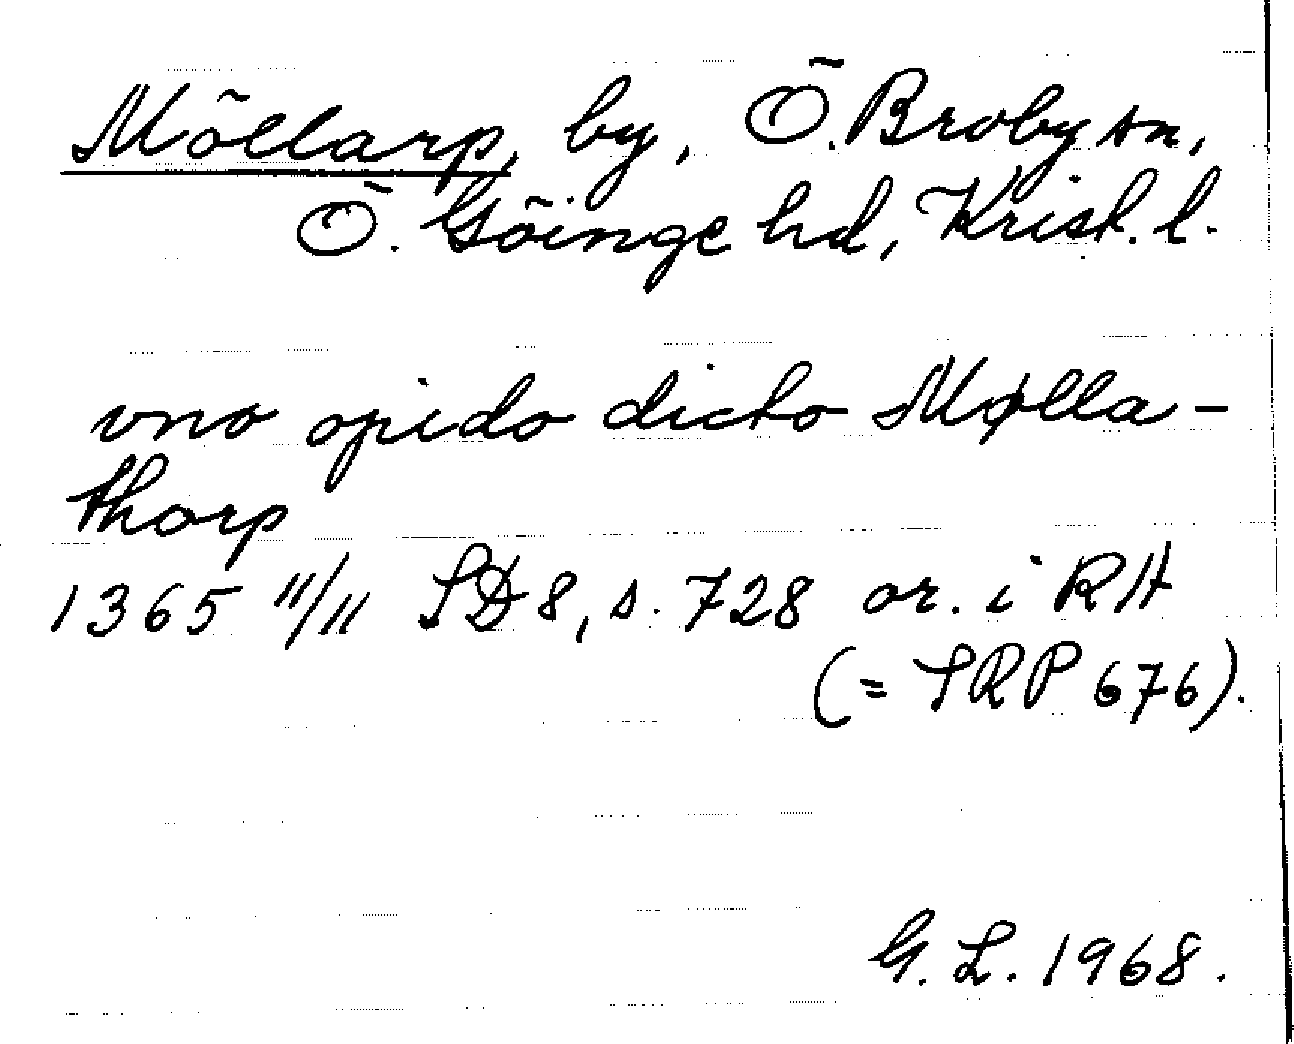 Möllarp, by, Ö. Broby sn,
Ö. Göinge hd, Krist. l.
vno opido dicto Mølla-
thorp
1365 11/11 SD 8, s. 728 or. i RA
(= SRP 676).
G. L. 1968.